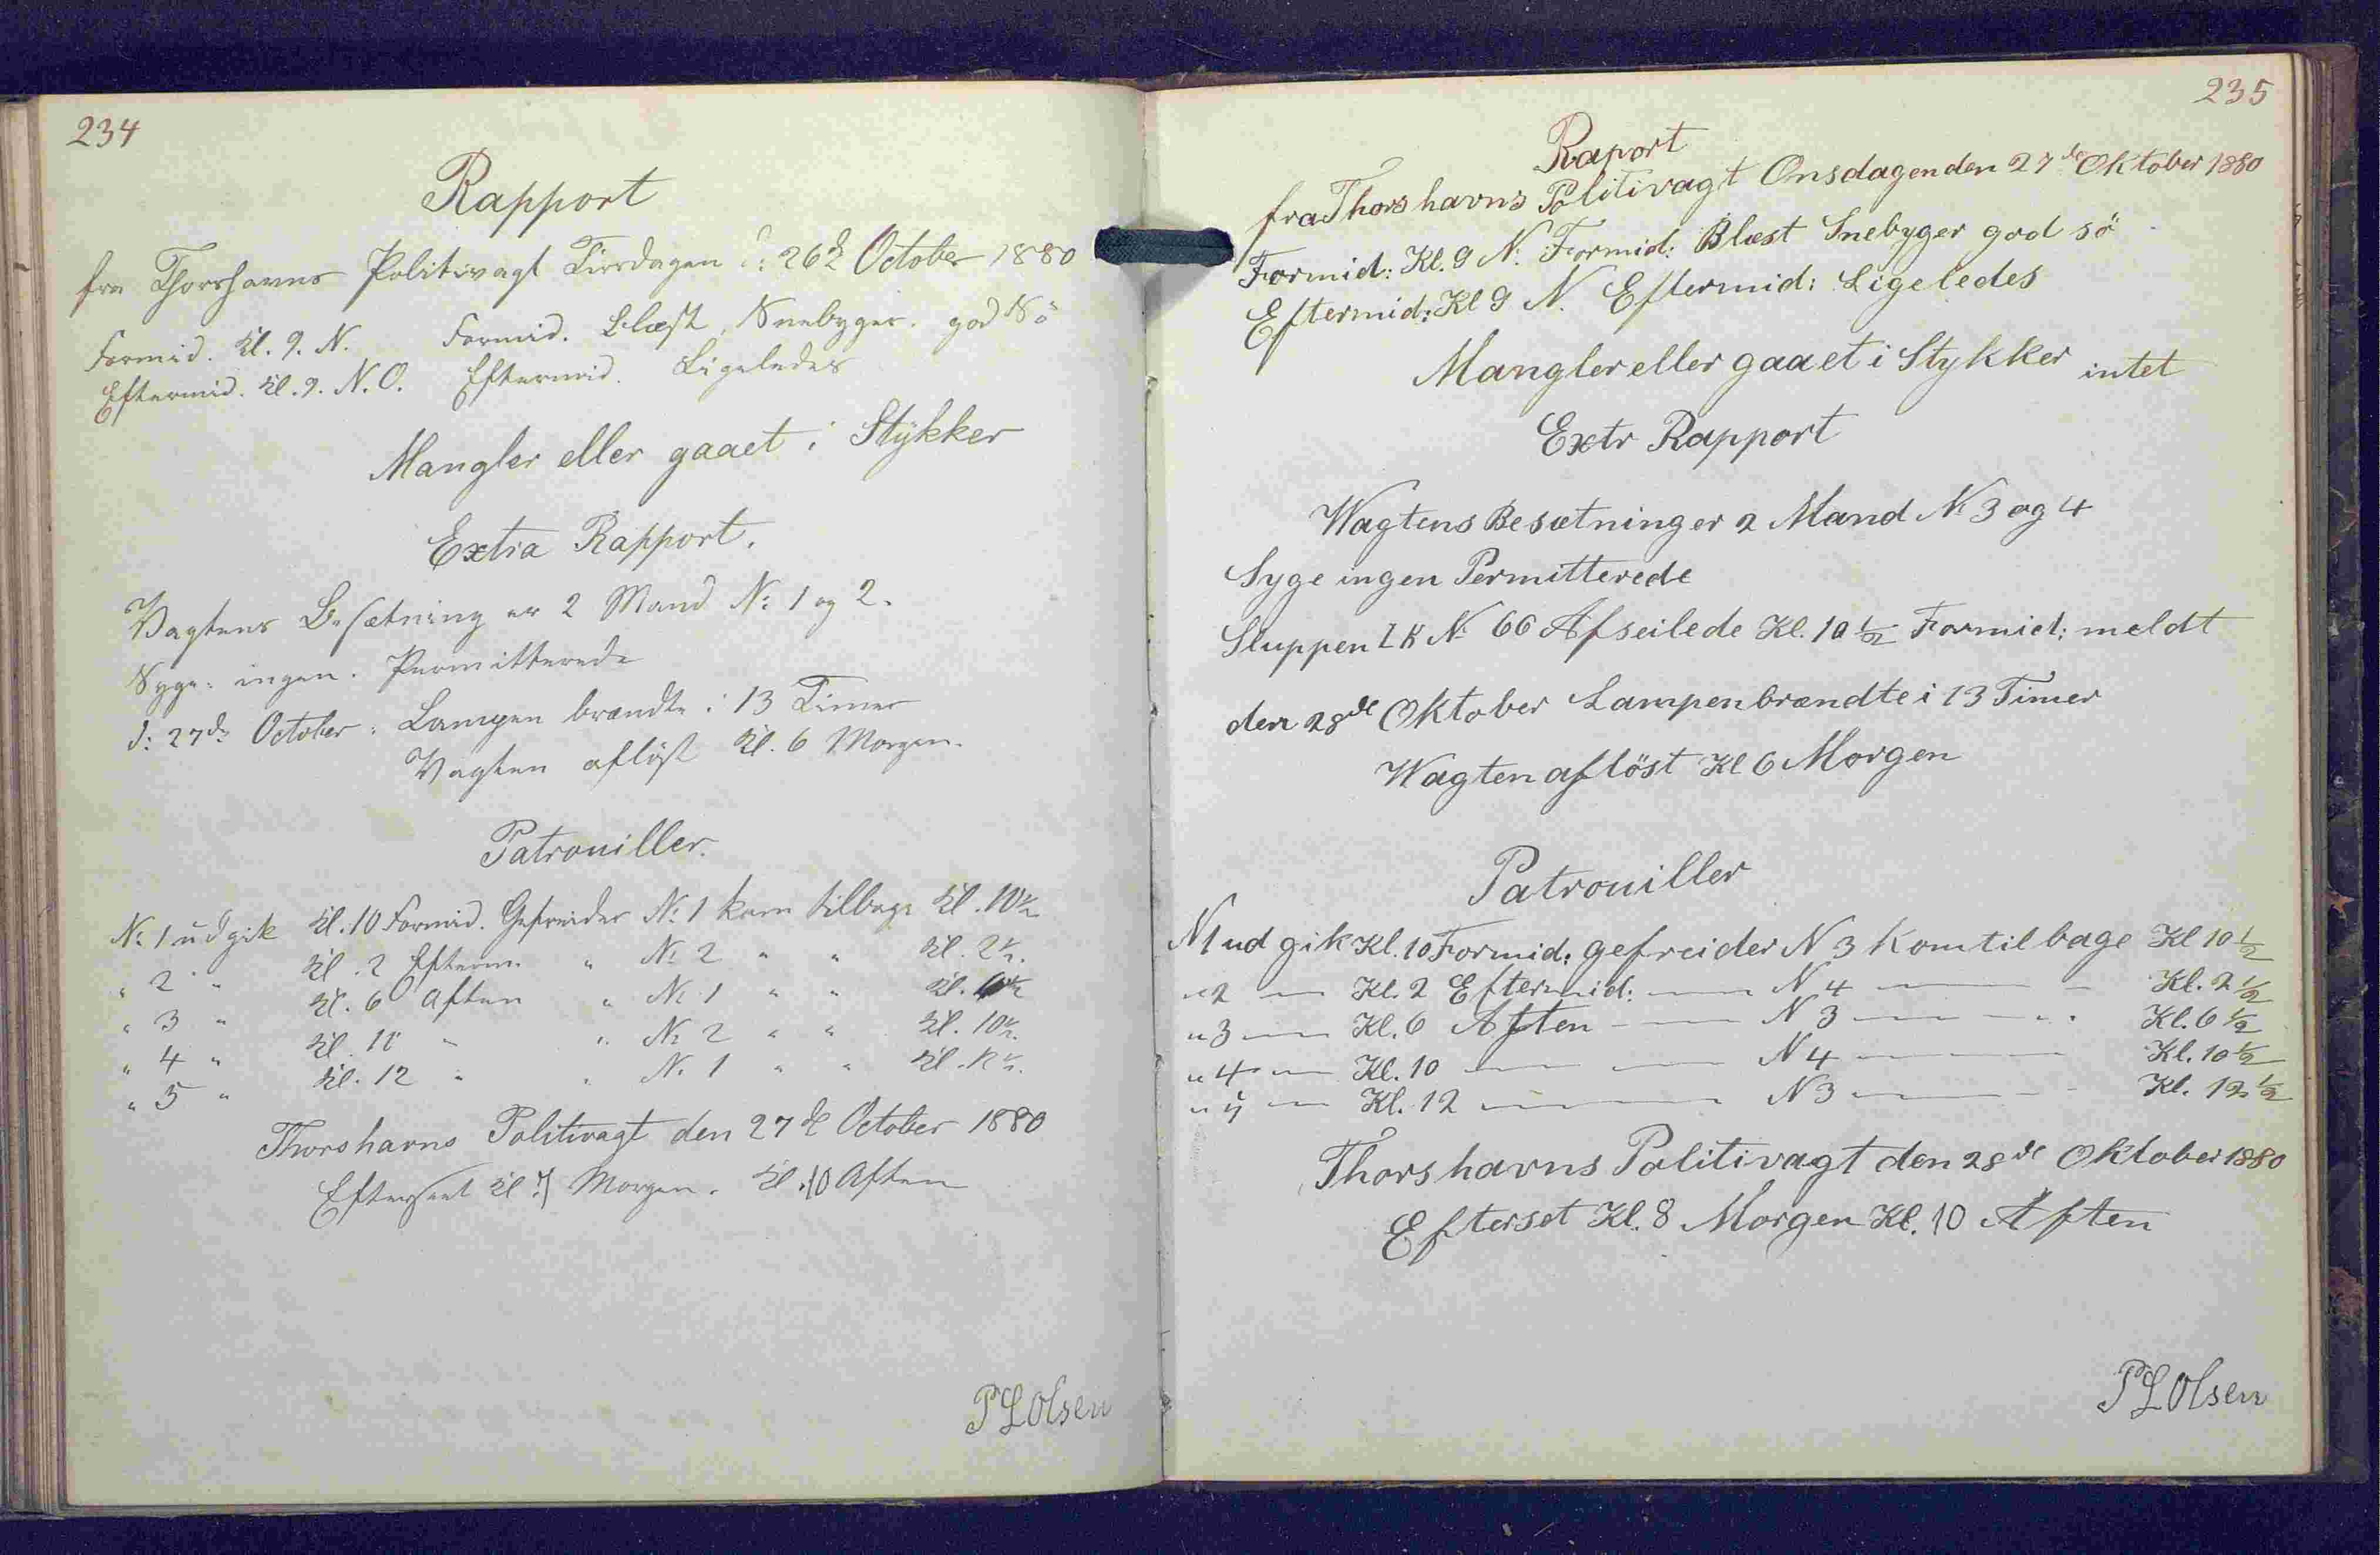 234
Rapport
fra Thorshavns Politivagt Tirsdagen d: 26d October 1880
Formid. Kl. 9. N. Formid. Blæst, Snebyger. god Sö
Eftermid. Kl. 9. N.O. Eftermid. Ligeledes
Mangler eller gaaet i Stykker
Extra Rapport.
Vagtens Besætning er 2 Mand No 1 og 2.
Syge: ingen. Permitterede
d: 27de October: Lampen brændte i 13 Timer
Vagten aflöst Kl. 6 Morgen.
Patrouiller.
No 1 udgik Kl. 10 Formid. Gefreider No 1 kom tilbage Kl. 10½
" 2 " Kl. 2 Efterm. " No 2 " " Kl. 2½.
" 3 " Kl. 6 Aften " No 1 " " Kl. 6½
" 4 " Kl. 10 " " No 2 " " Kl. 10½.
" 5 " Kl. 12 " " No 1 " " Kl. 12½.
Thorshavns Politivagt den 27de October 1880
Efterseet Kl. 7 Morgen. Kl. 10 Aften
P L Olsen
235
Raport
fra Thorshavns Politivagt Onsdagen den 27de Oktober 1880
Formid: Kl. 9 N. Formid: Blæst Snebyger god sö
Eftermid: Kl 9 N. Eftermid: Ligeledes
Mangler eller gaaet i Stykker intet
Extr Rapport
Wagtens Besætning er 2 Mand No 3 og 4
Syge ingen Permitterede
Sluppen No 66 Afseilede Kl. 10½ Formid: meldt
den 28de Oktober Lampen brændte i 13 Timer
Wagten aflöst Kl 6 Morgen
Patrouiller
N 1 ud gik Kl. 10 Formid: gefreider N 3 Kom til bage Kl 10½
" 2 — Kl. 2 Eftermid: — N 4 — — Kl. 2½
" 3 — Kl. 6 Aften — N 3 — — Kl. 6½
" 4 — Kl. 10 — — N 4 — — Kl. 10½
" 5 — Kl. 12 — — N 3 — — Kl. 12½
Thorshavns Politivagt den 28de Oktober 1880
Efterset Kl. 8 Morgen Kl. 10 Aften
P L Olsen